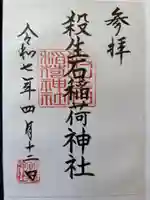 参拝
殺生石稲荷神社
令和七年四月十二日